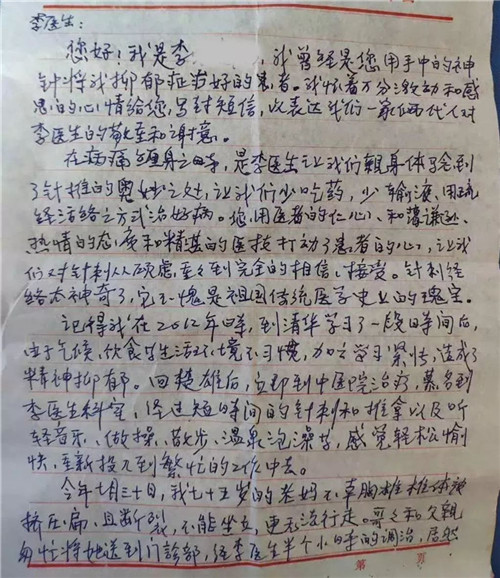 李医生：
您好！我是李 ，我曾经是您用手中的神
针将我抑郁症治好的患者。我怀着万分激动和感
恩的心情给您写封短信，以表达我们一家两代人对
李医生的敬意和谢意。
在病痛缠身之时，是李医生让我们亲身体会到
了针推的奥妙之处，让我们少吃药，少输液，用疏
经活络之方式治好病。您用医者的仁心、和蔼谦逊、
热情的态度和精湛的医技打动了患者的心，让我
们对针刺从顾虑，甚至到完全的相信、接受。针刺经
络太神奇了，它不愧是祖国传统医学史上的瑰宝。
记得我在2012年时，到清华学习了一段时间后，
由于气候、饮食与生活环境不习惯，加之学习紧张，造成了
精神抑郁。回楚雄后，立即到中医院治疗，慕名到
李医生科室，经过短时间的针刺和推拿以及听
轻音乐、做操、散步、温泉泡澡等，感觉轻松愉
快，重新投入到繁忙的工作中去。
今年七月三十日，我七十五岁的老妈不幸胸椎椎体被
挤压扁，且断裂，不能坐立，更无法行走。哥哥和父亲
匆忙将她送到门诊部，经李医生半个小时的调治，居然
第 页